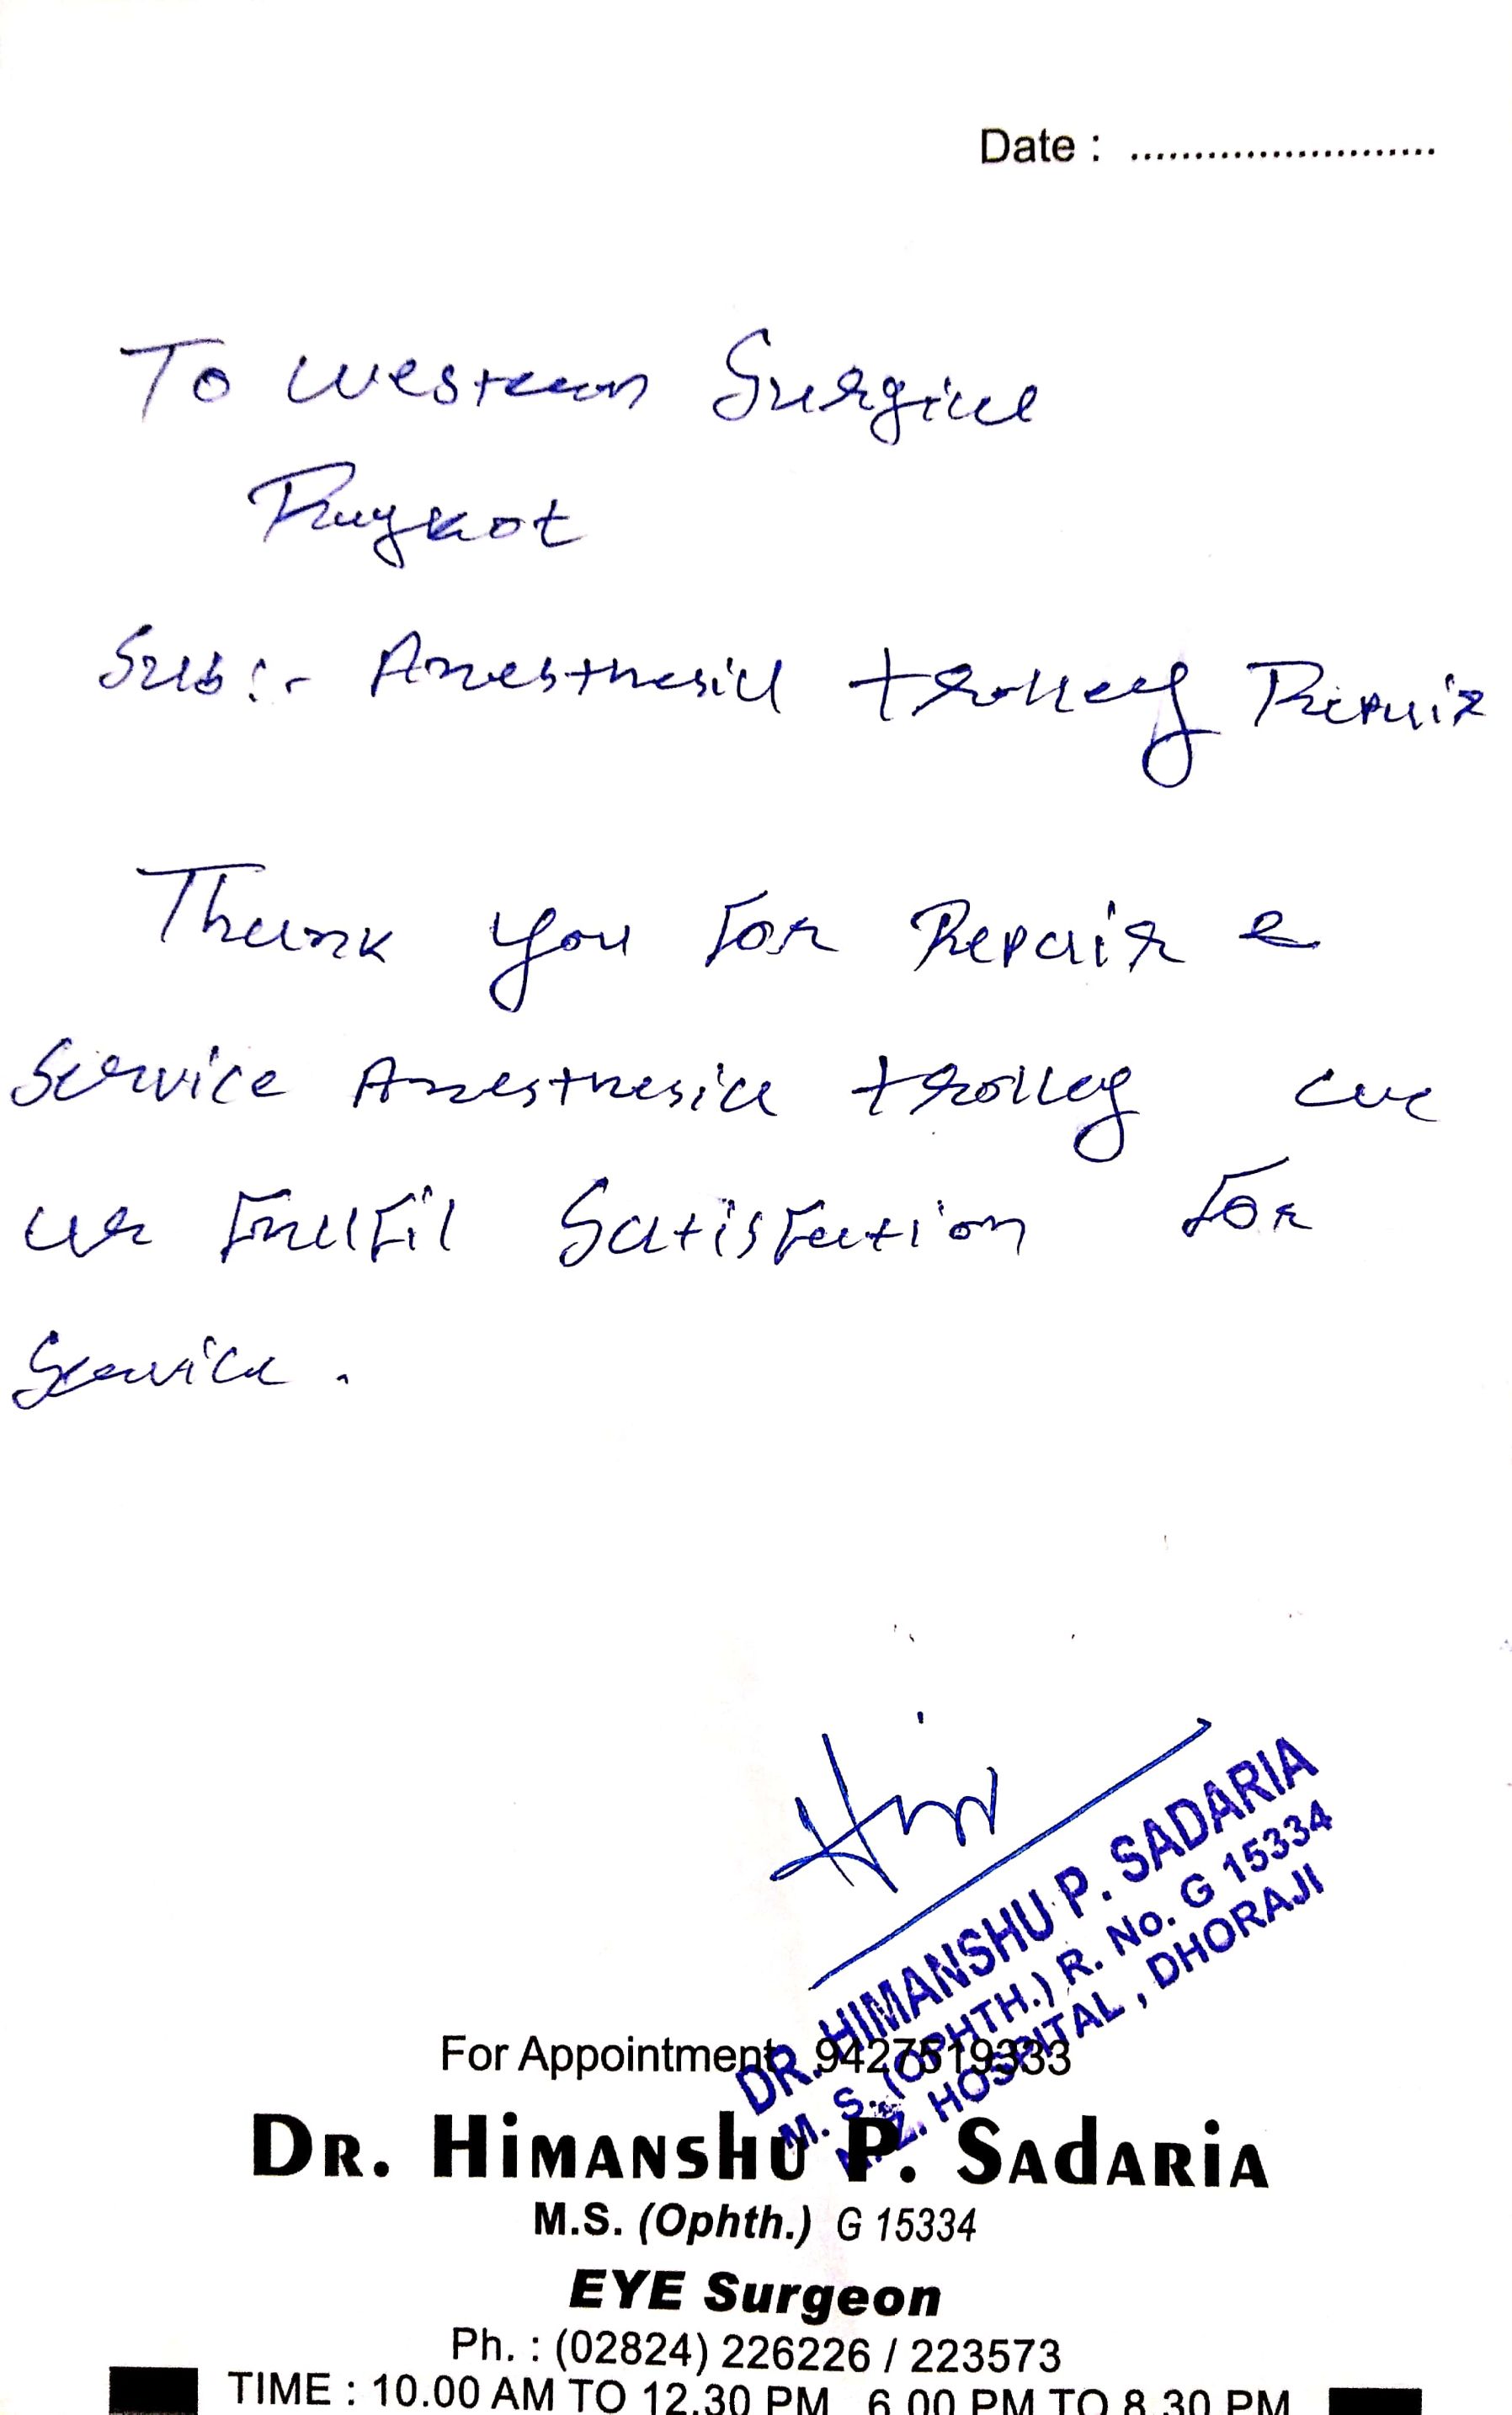 Date : ........................
To Western Surgical
Rajkot
Sub:- Anesthesia trolley Repair
Thank you for Repair &
Service Anesthesia trolley
we are fulfil Satisfaction for
Service.
DR. HIMANSHU P. SADARIA
M. S. (OPHTH.) R. No. G 15334
HOSPITAL, DHORAJI
For Appointment 9427519333
DR. HIMANSHU P. SADARIA
M.S. (Ophth.) G 15334
EYE Surgeon
Ph. : (02824) 226226 / 223573
TIME : 10.00 AM TO 12.30 PM 6.00 PM TO 8.30 PM